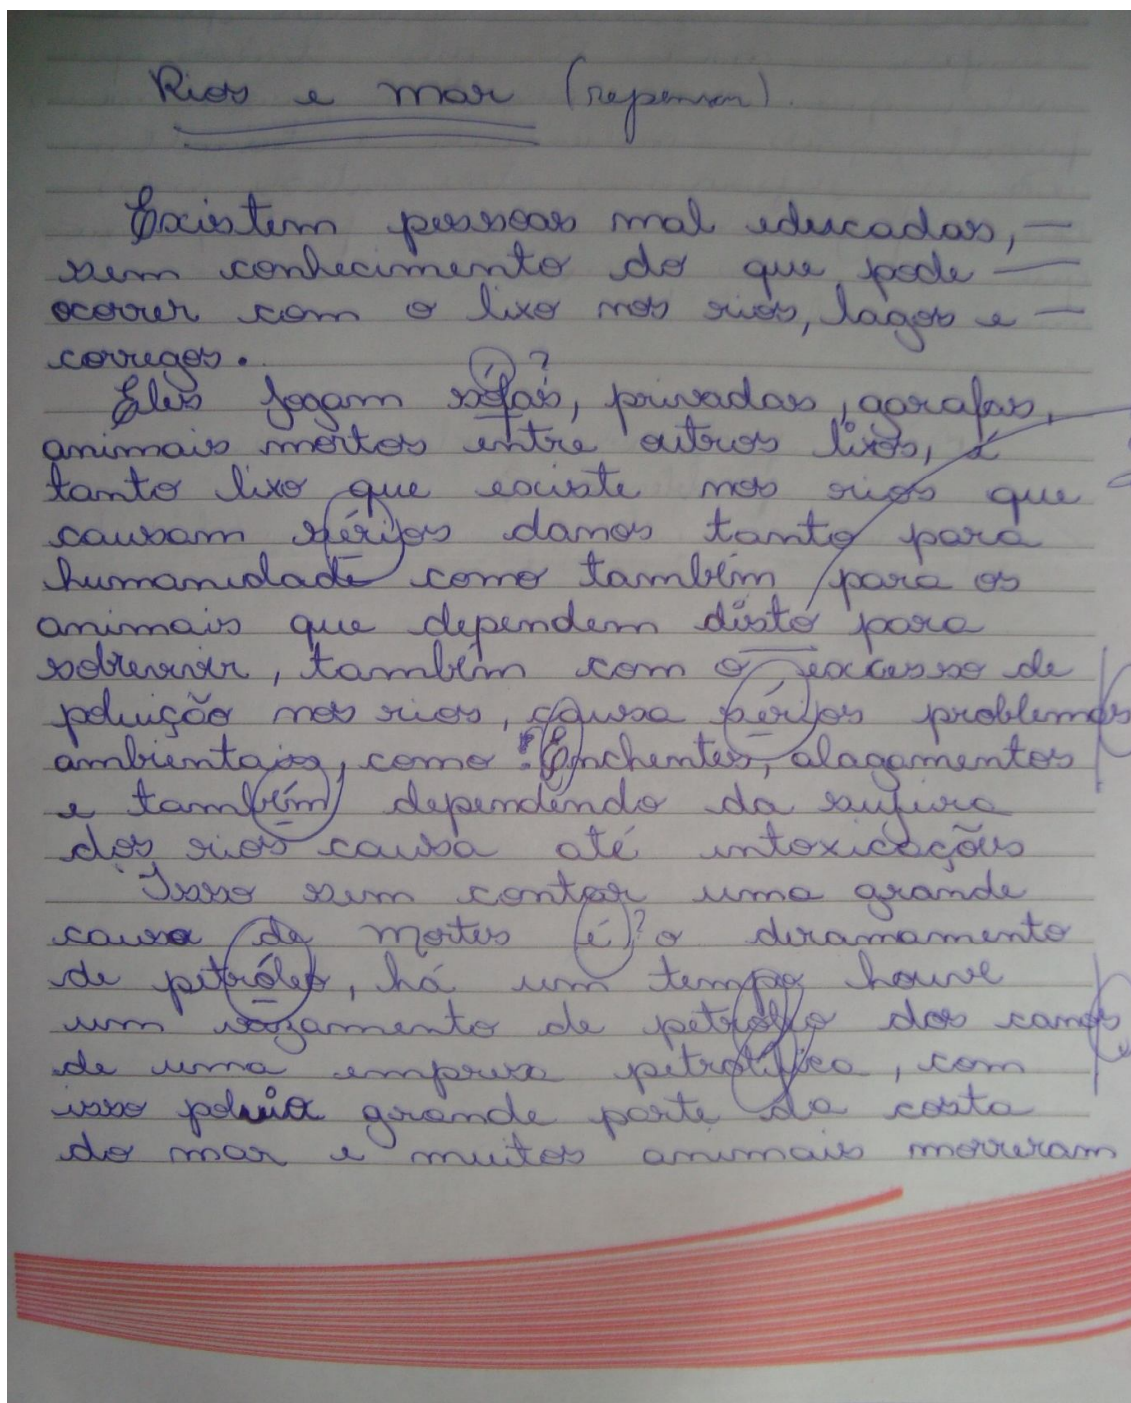 Rios e mar (repensar).
Existem pessoas mal educadas,
sem conhecimento do que pode
ocorrer com o lixo nos rios, lagos e
corregos.
Eles jogam sófas, privadas, garafas,
animais mortos entre outros lixos, é
tanto lixo que existe nos rios que
causam sérios danos tanto para
humanidade como também para os
animais que dependem disto para
sobreviver, também com o excesso de
poluição nos rios, causa sérios problemas
ambientais, como: Enchentes, alagamentos
e também dependendo da sujira
dos rios causa até intoxicações
Isso sem contar uma grande
causa de mortes é? o deramamento
de petróleo, há um tempo houve
um vazamento de petrólio dos canos
de uma empresa petrolífica, com
isso poluia grande parte da costa
do mar e muitos animais morreram